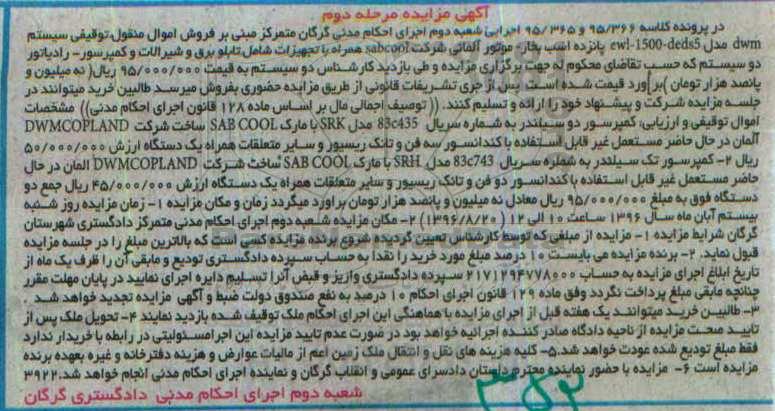 آگهی مزایده مرحله دوم
در پرونده کلاسه ۹۵/۳۶۶ و ۹۵/۳۶۵ اجرایی شعبه دوم اجرای احکام مدنی گرگان متمرکز مبنی بر فروش اموال منقول توقیفی سیستم
dwm مدل ewl-1500-deds5 پانزده اسب بخار- موتور آلمانی شرکت sabcool همراه با تجهیزات شامل تابلو برق و شیرالات و کمپرسور- رادیاتور
دو سیستم که حسب تقاضای محکوم له جهت برگزاری مزایده و طی بازدید کارشناس دو سیستم به قیمت ۹۵/۰۰۰/۰۰۰ ریال( نه میلیون و
پانصد هزار تومان )برآورد قیمت شده است پس از جری تشریفات قانونی از طریق مزایده حضوری بفروش میرسد طالبین خرید میتوانند در
جلسه مزایده شرکت و پیشنهاد خود را ارائه و تسلیم کنند. (( توصیف اجمالی مال بر اساس ماده ۱۲۸ قانون اجرای احکام مدنی)) مشخصات
اموال توقیفی و ارزیابی: کمپرسور دو سیلندر به شماره سریال 83c435 مدل SRK با مارک SAB COOL ساخت شرکت DWMCOPLAND
آلمان در حال حاضر مستعمل غیر قابل استفاده با کندانسور سه فن و تانک ریسیور و سایر متعلقات همراه یک دستگاه ارزش ۵۰/۰۰۰/۰۰۰
ریال ۲- کمپرسور تک سیلندر به شماره سریال 83c743 مدل SRH با مارک SAB COOL ساخت شرکت DWMCOPLAND آلمان در حال
حاضر مستعمل غیر قابل استفاده با کندانسور دو فن و تانک ریسیور و سایر متعلقات همراه یک دستگاه ارزش ۴۵/۰۰۰/۰۰۰ ریال جمع دو
دستگاه فوق به مبلغ ۹۵/۰۰۰/۰۰۰ ریال معادل نه میلیون و پانصد هزار تومان براورد میگردد زمان و مکان مزایده ۱- زمان مزایده روز شنبه
بیستم آبان ماه سال ۱۳۹۶ ساعت ۱۰ الی ۱۲ (۱۳۹۶/۸/۲۰ ) ۲- مکان مزایده شعبه دوم اجرای احکام مدنی متمرکز دادگستری شهرستان
گرگان شرایط مزایده ۱- مزایده از مبلغی که توسط کارشناس تعیین گردیده شروع برنده مزایده کسی است که بالاترین مبلغ را در جلسه مزایده
قبول نماید. ۲- برنده مزایده می بایست ۱۰ درصد مبلغ مورد خرید را نقدا به حساب سپرده دادگستری تودیع و مابقی آن را ظرف یک ماه از
تاریخ ابلاغ اجرای مزایده به حساب ۲۱۷۱۲۹۴۷۷۸۰۰۰ سپرده دادگستری واریز و قبض آنرا تسلیم دایره اجرای نمایید در پایان مهلت مقرر
چنانچه مابقی مبلغ پرداخت نگردد وفق ماده ۱۲۹ قانون اجرای احکام ۱۰ درصد به نفع صندوق دولت ضبط و آگهی مزایده تجدید خواهد شد .
۳- طالبین خرید میتوانند یک هفته قبل از اجرای مزایده با هماهنگی این اجرای احکام ملک توقیف شده بازدید نمایند ۴- تحویل ملک پس از
تایید صحت مزایده از ناحیه دادگاه صادر کننده اجرائیه خواهد بود در صورت عدم تایید مزایده این اجرا مسئولیتی در رابطه با خریدار ندارد
فقط مبلغ تودیع شده عودت خواهد شد.۵- کلیه هزینه های نقل و انتقال ملک زمین اعم از مالیات عوارض و هزینه دفترخانه و غیره بعهده برنده
مزایده است ۶- مزایده با حضور نماینده محترم دادستان دادسرای عمومی و انقلاب گرگان و نماینده اجرای احکام مدنی انجام خواهد شد.۳۹۲۲
شعبه دوم اجرای احکام مدنی دادگستری گرگان